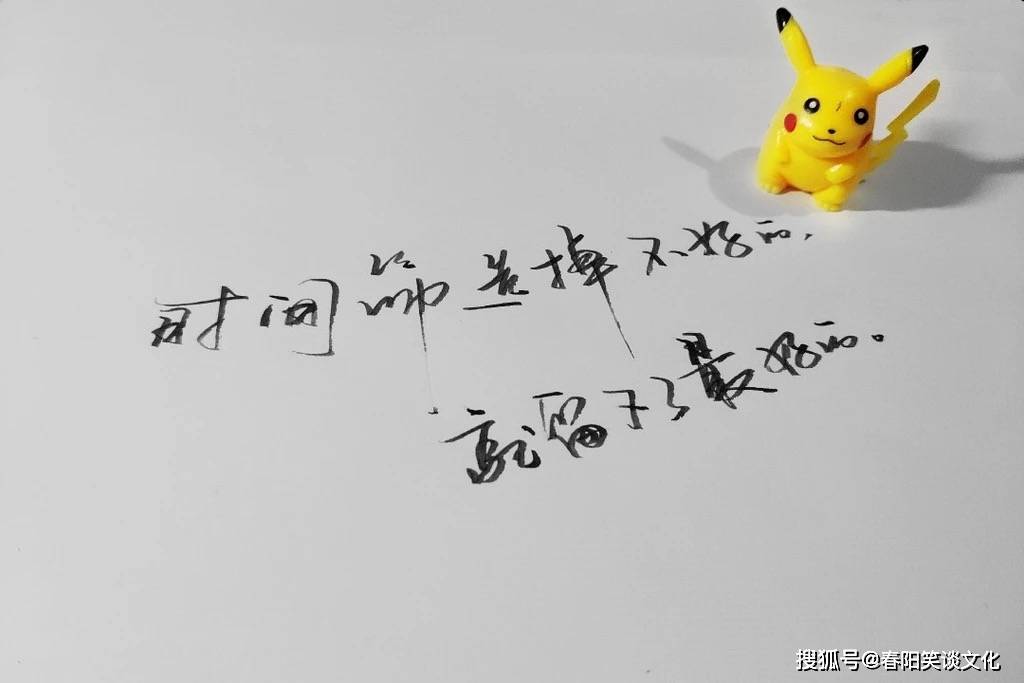 时间筛选掉不好的,
就留下了最好的。
搜狐号@春阳笑谈文化